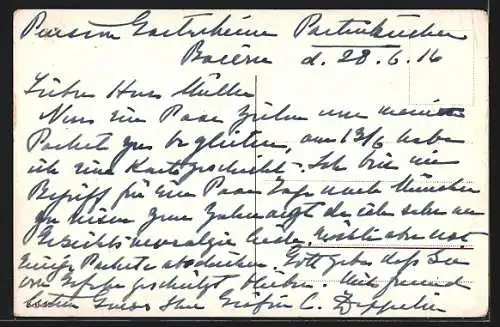 Pension Gasteheim Partenkirchen
Baiern d. 28.6.16
Lieber Herr Müller
Nur ein Paar Zeilen um mein
Packet zu begleiten, am 13/6 habe
ich eine Karte geschickt. Ich bin im
Begriff für ein Paar Tage nach München
zu reisen zum Zahnarzt da ich sehr an
Gesichtsneuralgie leide, wollte aber erst
Einige Packete abschicken. Gott gebe dass Sie
vor Gefahr geschützt bleiben. Mit freund
lichem Gruss Ihre Gräfin C. Zeppelin